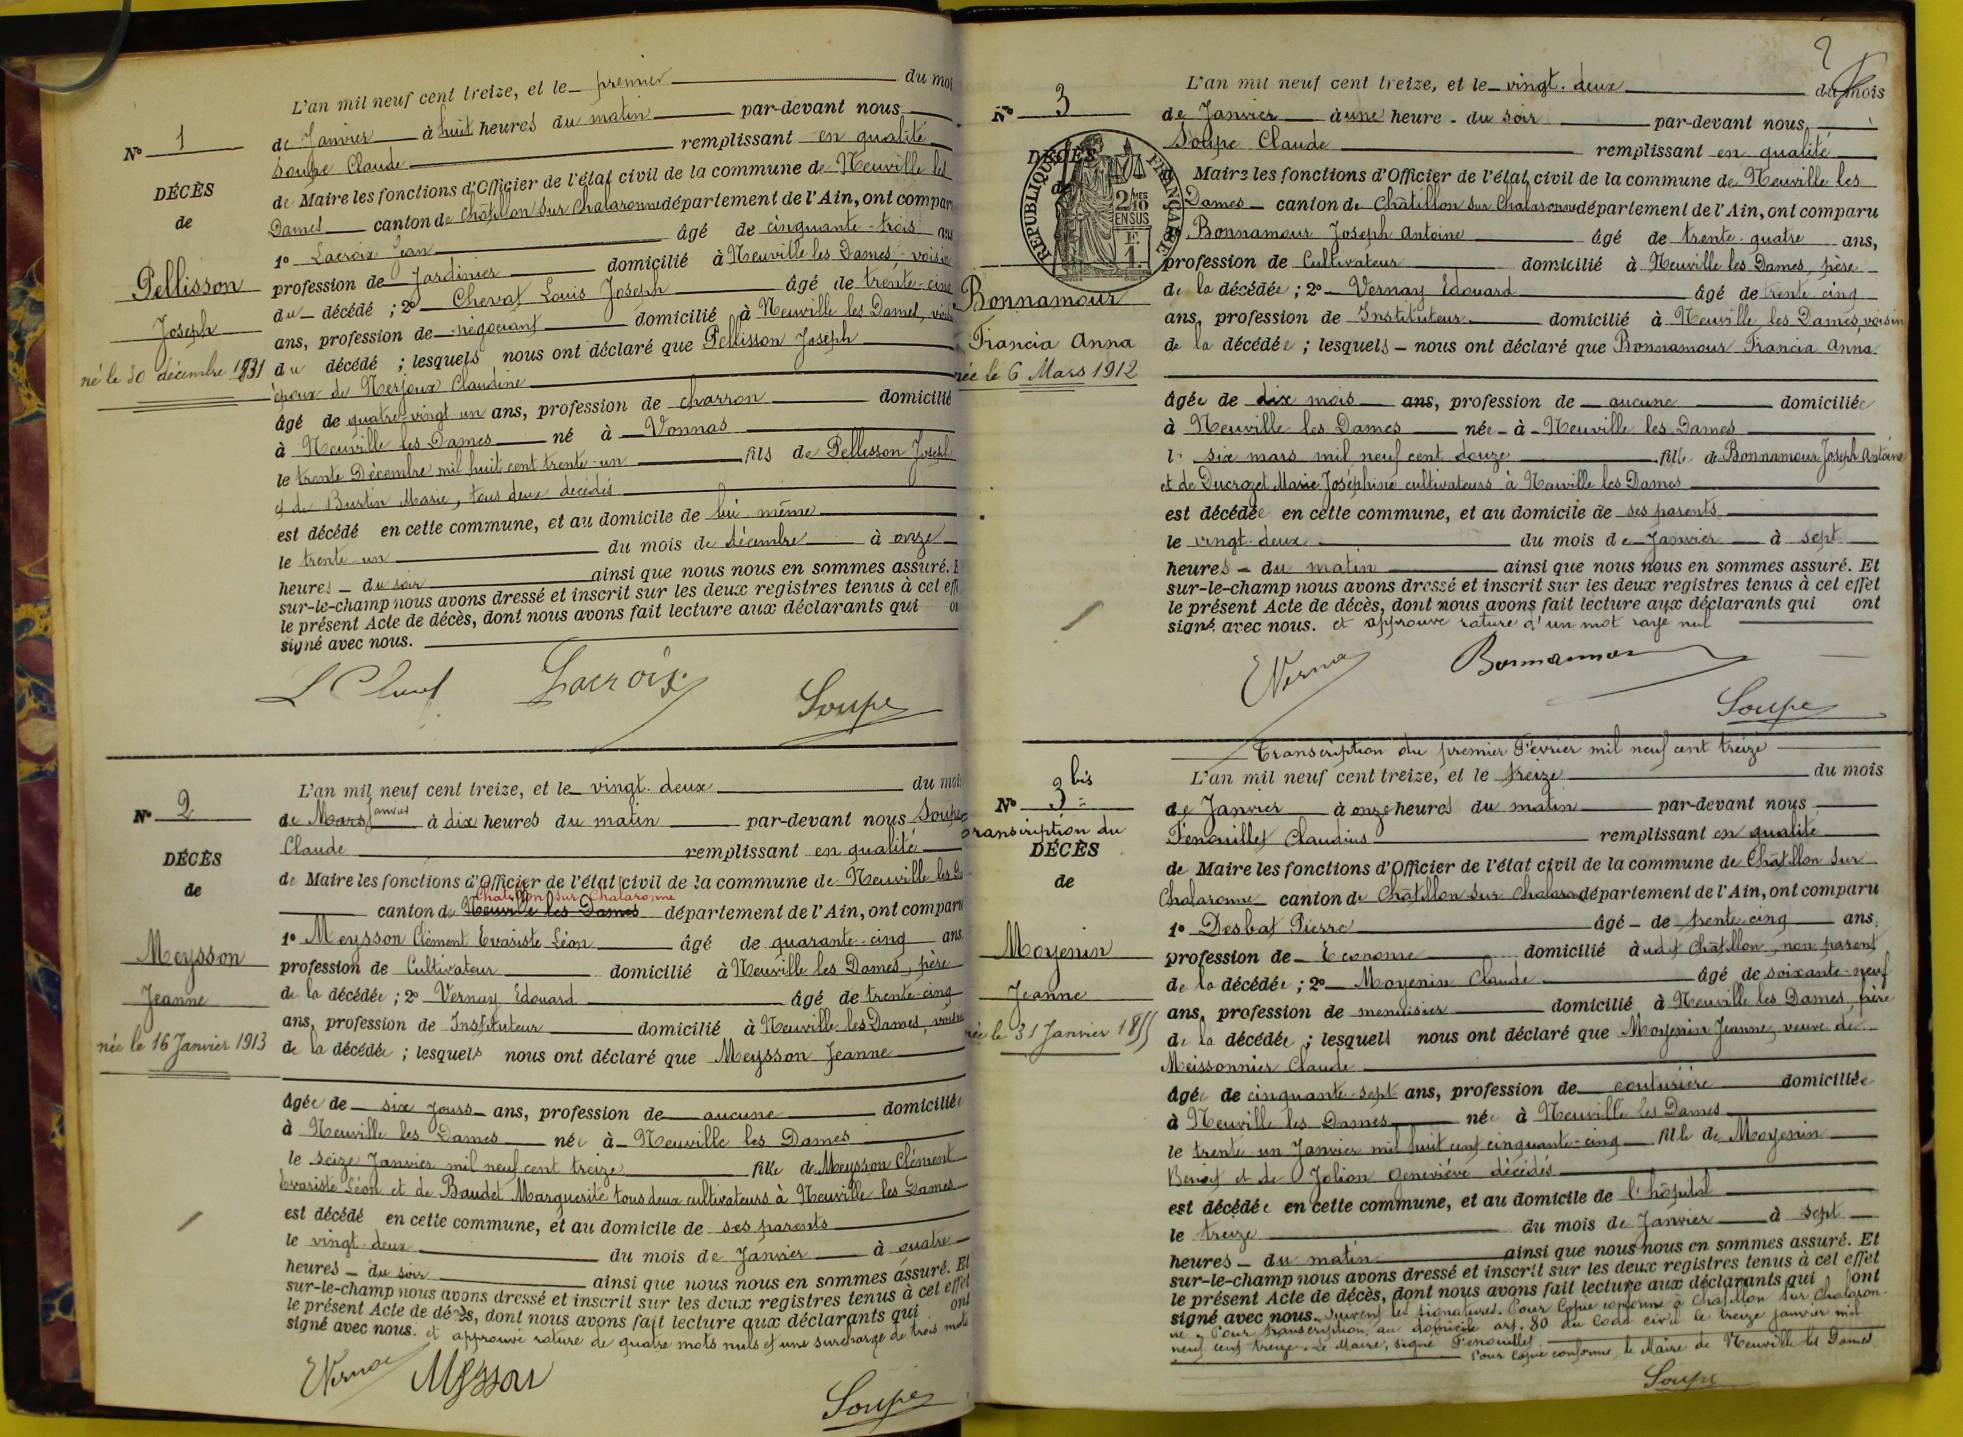 L'an mil neuf cent treize, et le premier du moi
N° 1
de Janvier à huit heures du matin par-devant nous
Soupe Claude remplissant en qualité
DÉCÈS
de Maire les fonctions d'Officier de l'état civil de la commune de Neuville les
de
Dames canton de Châtillon sur Chalaronne département de l'Ain, ont compar
1° Lacroix Jean âgé de cinquante-trois ans
Pellisson
profession de Jardinier domicilié à Neuville les Dames voisin
du décédé ; 2° Chevat Louis Joseph âgé de trente-cinq
Joseph
ans, profession de négociant domicilié à Neuville les Dames, voisin
né le 30 décembre 1831
du décédé ; lesquels nous ont déclaré que Pellisson Joseph
époux de Nerjoux Claudine
âgé de quatre-vingt-un ans, profession de charron domicilié
à Neuville les Dames né à Vonnas
le trente Décembre mil huit cent trente-un fils de Pellisson Joseph
et de Burtin Marie, tous deux décédés
est décédé en cette commune, et au domicile de lui même
le trente un du mois de décembre à onze
heures du soir ainsi que nous nous en sommes assuré. E
sur-le-champ nous avons dressé et inscrit sur les deux registres tenus à cel eff
le présent Acte de décès, dont nous avons fait lecture aux déclarants qui on
signé avec nous.
Lacroix Soupe
L'an mil neuf cent treize, et le vingt-deux du moi
N° 2
de Mars Janvier à dix heures du matin par-devant nous Soupe
Claude remplissant en qualité
DÉCÈS
de Maire les fonctions d'Officier de l'état civil de la commune de Neuville les D
de
Chatillon sur Chalaronne
canton de Neuville les Dames département de l'Ain, ont comparu
1° Meysson Clément Evariste Léon âgé de quarante-cinq ans
Meysson
profession de Cultivateur domicilié à Neuville les Dames, père
Jeanne
de la décédée ; 2° Vernay Edouard âgé de trente-cinq
ans, profession de Instituteur domicilié à Neuville les Dames, voisin
née le 16 Janvier 1913
de la décédée ; lesquels nous ont déclaré que Meysson Jeanne
âgée de six jours ans, profession de aucune domiciliée
à Neuville les Dames née à Neuville les Dames
le seize Janvier mil neuf cent treize fille de Meysson Clément
Evariste Léon et de Baudet Marguerite tous deux cultivateurs à Neuville les Dames
est décédé en cette commune, et au domicile de ses parents
le vingt-deux du mois de Janvier à quatre
heures du soir ainsi que nous nous en sommes assuré. Et
sur-le-champ nous avons dressé et inscrit sur les deux registres tenus à cel effet
le présent Acte de décès, dont nous avons fait lecture aux déclarants qui ont
signé avec nous. et approuvé rature de quatre mots nuls et une surcharge de trois mots
Meysson
Soupe
2
L'an mil neuf cent treize, et le vingt-deux du mois
N° 3
de Janvier à une heure du soir par-devant nous
Soupe Claude remplissant en qualité
DÉCÈS
de
RÉPUBLIQUE FRANÇAISE
2/10MES EN SUS
F. 1.
Maire les fonctions d'Officier de l'état civil de la commune de Neuville les
Dames canton de Châtillon sur Chalaronne département de l'Ain, ont comparu
Bonnamour Joseph Antoine âgé de trente-quatre ans,
profession de Cultivateur domicilié à Neuville les Dames, père
de la décédée ; 2° Vernay Edouard âgé de trente cinq
Bonnamour
ans, profession de Instituteur domicilié à Neuville les Dames, voisin
Francia Anna
de la décédée ; lesquels nous ont déclaré que Bonnamour Francia Anna
née le 6 Mars 1912
âgée de dix mois ans, profession de aucune domiciliée
à Neuville les Dames née à Neuville les Dames
le six mars mil neuf cent douze fille de Bonnamour Joseph Antoine
et de Ducrozet Marie Joséphine cultivateurs à Neuville les Dames
est décédée en cette commune, et au domicile de ses parents
le vingt-deux du mois de Janvier à sept
heures du matin ainsi que nous nous en sommes assuré. Et
sur-le-champ nous avons dressé et inscrit sur les deux registres tenus à cel effet
le présent Acte de décès, dont nous avons fait lecture aux déclarants qui ont
signé avec nous. et approuvé rature d'un mot rayé nul
Bonnamour
Soupe
Transcription du premier Février mil neuf cent treize
L'an mil neuf cent treize, et le treize du mois
N° 3 bis
de Janvier à onze heures du matin par-devant nous
transcription du
Fenouillet Claudius remplissant en qualité
DÉCÈS
de Maire les fonctions d'Officier de l'état civil de la commune de Châtillon sur
de
Chalaronne canton de Châtillon sur Chalaronne département de l'Ain, ont comparu
1° Desbat Pierre âgé de trente-cinq ans,
Moyenin
profession de Econome domicilié à udit Châtillon, non parent
de la décédée ; 2° Moyenin Claude âgé de soixante-neuf
Jeanne
ans, profession de menuisier domicilié à Neuville les Dames, frère
née le 31 Janvier 1855
de la décédée ; lesquels nous ont déclaré que Moyenin Jeanne, veuve de
Meissonnier Claude
âgée de cinquante-sept ans, profession de couturière domiciliée
à Neuville les Dames née à Neuville les Dames
le trente-un Janvier mil huit cent cinquante-cinq fille de Moyenin
Benoit et de Jolion Geneviève décédés
est décédée en cette commune, et au domicile de l'hôpital
le treize du mois de Janvier à sept
heures du matin ainsi que nous nous en sommes assuré. Et
sur-le-champ nous avons dressé et inscrit sur les deux registres tenus à cel effet
le présent Acte de décès, dont nous avons fait lecture aux déclarants qui ont
signé avec nous. suivent les signatures. Pour Copie conforme à Châtillon sur Chalaron-
ne. Pour transcription au domicile art. 80 du Code civil le treize janvier mil
neuf cent treize. Le Maire, signé Fenouillet
Pour copie conforme, le Maire de Neuville les Dames
Soupe